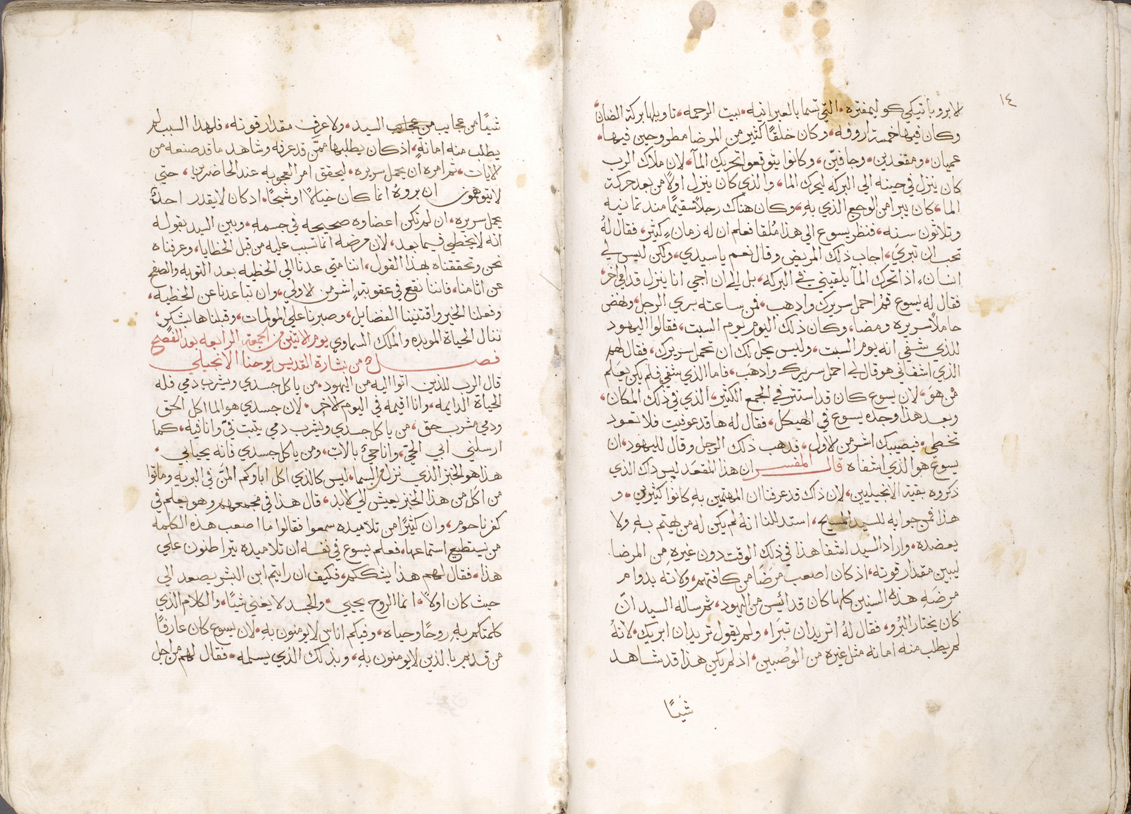 ١٤
لابروباتيكي كولمفترة التي تسما بالعبرانيه بيت الرحمه تاويلها بركة الضان
وكان فيها خمسة اروقه وكان خلقًا كثير من المرضا مطروحين فيها
عميان ومقعدين وجافين وكانوا يتوقعوا تحريك المآ لان ملاك الرب
كان ينزل في حينه الى البركه ليحرك الما والذي كان ينزل اولًا من بعد حركة
الما كان يبرا من الوجع الذي به وكان هناك رجلًا سقيمًا منذ تمانيه
وتلاتون سنه فنظر يسوع الى هذا ملقا فعلم ان له زمان كثير فقال له
تحب ان تبري اجاب ذلك المريض وقال نعم ياسيدي ولكن ليس لي
انسان اذا تحرك الما يلقيني في البركه بل الى ان اجي انا ينزل قدامي اخر
فقال له يسوع قم احمل سريرك واذهب فمن ساعته بري الرجل ونهض
حاملًا سريره ومضا وكان ذلك اليوم يوم السبت فقالوا اليهود
للذي شفي انه يوم السبت وليس يحل لك ان تحمل سريرك فقال لهم
الذي اشفاني هو قال لي احمل سريرك واذهب فاما الذي شفي فلم يكن يعلم
من هو لان يسوع كان قد استتر في الجمع الكثير الذي في ذلك المكان
وبعد هذا وجده يسوع في الهيكل فقال له ها قد عوفيت فلا تعود
تخطي فيصيبك اشر من الاول فذهب ذلك الرجل وقال لليهود ان
يسوع هو الذي اشفاه قال المفسر ان هذا المقعد ليس ذك الذي
ذكروه بقية الانجيليين لان ذلك قد عرفنا ان المهتمين به كانوا كثيرين و
هذا فمن جوابه للسيد المسيح استدللنا انه لم يكن له من يهتم به ولا
يعضده واراد السيد اشفا هذا في ذلك الوقت دون غيره من المرضا
ليبين مقدار قوته اذ كان اصعب مرضًا من كافتهم ولانه بدوام
مرضه هذه السنين كلها كان قد ائيس من البرو ثم ساله السيد ان
كان يختار البرو فقال له اتريد ان تبرا ولم يقول تريد ان ابريك لانه
لم يطلب منه امانه مثل غيره من الوصبين اذ لم يكن هذا قد شاهد
شيًا
شيًا من عجايب السيد ولا عرف مقدار قوته فلهذا السبب لم
يطلب منه امانه اذ كان يطلبها ممن قد عرفه وشاهد ما قد صنعه من
الايات ثم امره ان يحمل سريره ليحقق امر العجوبه عند الحاضرين حتي
لا يتوهموا ان بروه انما كان خيالًا او شبحًا اذ كان لا يقدر احدًا
يحمل سريره ان لم تكن اعضاوه صحيحه في جسمه وبين السيد بقوله
انه لا يخطي فيما بعد لان مرضه انما تسبب عليه من قبل الخطايا وعرفناه
نحن وتحققناه هذا القول اننا متى عدنا الى الخطيه بعد التوبه والصفح
عن اثامنا فاننا نقع في عقوبة اشر من الاولى وان تباعدنا عن الخطيه
وفعلنا الخير واقتنينا الفضايل وصبرنا على المولمات وقبلناها بشكر
ننال الحياة الموبده والملك السماوي يوم الاتنين من الجمعة الرابعه بعد الفصح
فصل من بشارة القديس يوحنا الانجيلي
قال الرب للذين اتوا اليه من اليهود من ياكل جسدي ويشرب دمي فله
الحياة الدايمه وانا اقيمه في اليوم الاخر لان جسدي هو الماكل الحق
ودمي مشرب حق من ياكل جسدي ويشرب دمي يتبت في وانا فيه كما
ارسلني ابي الحي وانا حي بالاب ومن ياكل جسدي فانه يحيا بي
هذا هو الخبز الذي نزل من السما ليس كالذي اكل اباوكم المن في البريه وماتوا
من اكل من هذا الخبز يعيش الى الابد قال هذا في مجمعهم وهو يعلم في
كفرناحوم وان كثيرًا من تلاميده سمعوا فقالوا ما اصعب هذه الكلمه
من يستطيع استماعها فعلم يسوع في نفسه ان تلاميده يتراطنون علي
هذا فقال لهم هذا يشككم فكيف ان رايتم ابن البشر يصعد الى
حيث كان اولًا انما الروح يحيي والجسد لا يغني شيًا والكلام الذي
كلمتكم به روحًا وحياه وفيكم اناس لا يومنون به لان يسوع كان عارفًا
من قدم بالذين لا يومنون به وبذلك الذي يسلمه فقال لهم من اجل